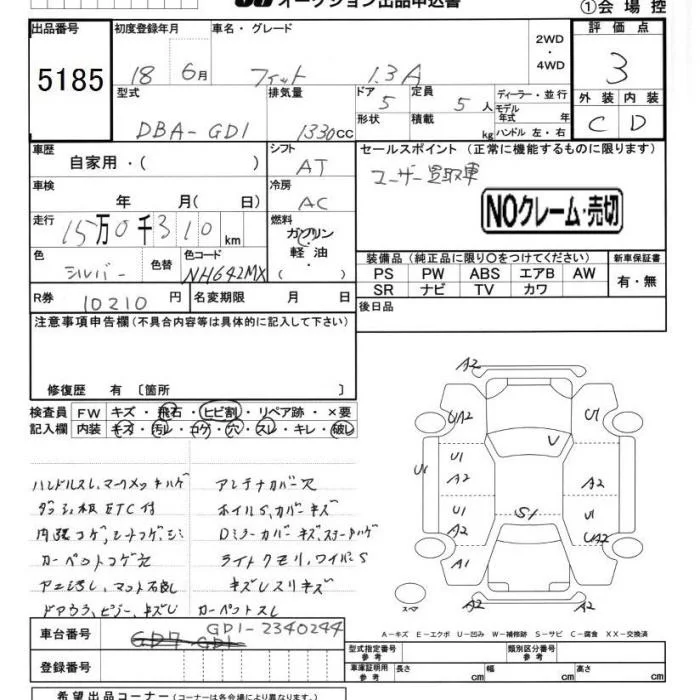 オークション出品申込書
①会場控
出品番号
5185
初度登録年月
18 6月
車名・グレード
フィット 1.3A
2WD
・
4WD
評価点
3
外装 内装
C D
型式
DBA-GD1
排気量
1330cc
ドア
5
形状
定員
5人
積載
kg
ディーラー・並行
モデル
年式 年
ハンドル 左・右
車歴
自家用・( )
シフト
AT
車検
年 月( 日)
冷房
AC
走行
15万0千310km
燃料
ガソリン
軽油
( )
色
シルバー
色替
色コード
NH642MX
R券
10210円
名変期限 月 日
セールスポイント (正常に機能するものに限ります)
ユーザー買取車
NOクレーム・売切
装備品(純正品に限り○をつけてください)
新車保証書
PS PW ABS エアB AW
SR ナビ TV カワ
有・無
後日品
注意事項申告欄(不具合内容等は具体的に記入して下さい)
修復歴 有〔箇所 〕
検査員
記入欄
FW キズ・飛石・ヒビ割・リペア跡・×要
内装 キズ・汚レ・コゲ・穴・スレ・キレ・破レ
ハンドルスレ、マークメッキハゲ
ダッシュ板ETC付
内張コゲ、シートコゲ、シミ
カーペットコゲ穴
マット
ドアウラ、ピラー、キズU
アンテナカバー欠
ホイルS、カバーキズ
Dミラーカバーキズ、ステッカーハゲ
ライトクモリ、ワイパーS
キズ スリキズ
カーペットスレ
A2
UA2
U1
V
U1
U1
A2
A2
U1
A2
S1
U1
UA2
A1
A2
A2
スペア
A-キズ E-エクボ U-凹み W-補修跡 S-サビ C-腐食 XX-交換済
車台番号
GD1-2340244
登録番号
型式指定番号
参考
類別区分番号
参考
車庫証明用
参考
長さ cm 幅 cm 高さ cm
希望出品コーナー(コーナーは各会場により異なります。)